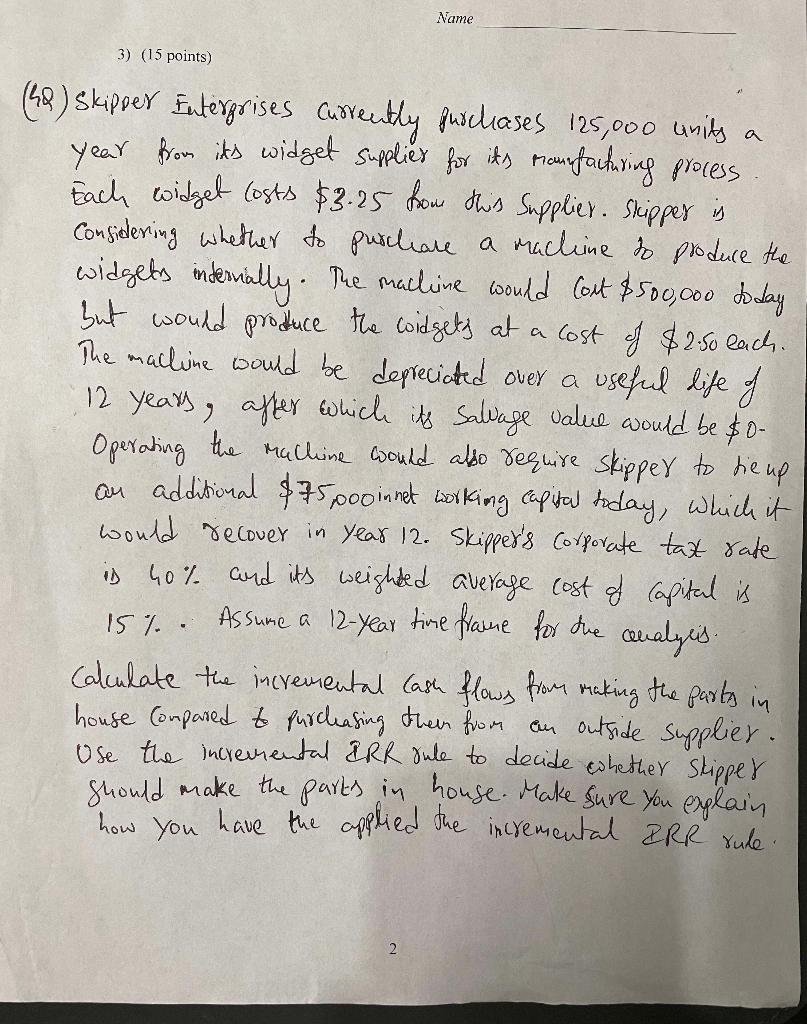 Name
3) (15 points)
(4Q) Skipper Enterprises currently purchases 125,000 units a
year from its widget supplier for its manufacturing process.
Each widget costs $3.25 from this supplier. Skipper is
Considering whether to purchase a machine to produce the
widgets internally. The machine would cost $500,000 today
but would produce the widgets at a cost of $2.50 each.
The machine would be depreciated over a useful life of
12 years, after which its salvage value would be $0-
Operating the machine would also require Skipper to tie up
an additional $75,000 in net working capital today, which it
would recover in year 12. Skipper's Corporate tax rate
is 40% and its weighted average cost of capital is
15%. Assume a 12-year time frame for the analysis.
Calculate the incremental cash flows from making the parts in
house compared to purchasing them from an outside supplier.
Use the incremental IRR rule to decide whether Skipper
should make the parts in house. Make sure you explain
how you have the applied the incremental IRR rule.
2